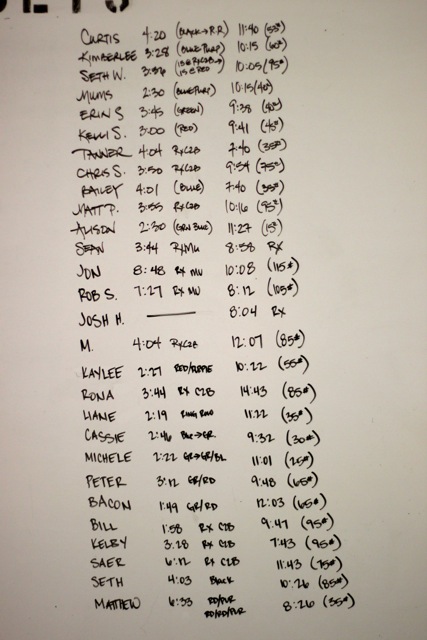 CURTIS 4:20 (BLACK → R.R) 11:40 (55#)
KIMBERLEE 3:28 (BLUE PURP) 10:15 (60#)
SETH W. 10:05 (95#)
MUMS 2:30 (BLUE PURP) 10:15 (40#)
ERIN S 3:45 (GREEN) 9:38
KELLI S. 3:00 (RED) 9:41 (45#)
TANNER 4:04 RXC2B 7:40 (35#)
CHRIS S. 3:50 RXC2B 9:54 (75#)
BAILEY 4:01 (BLUE) 7:40 (55#)
MATT P. 3:55 RXC2B 10:16 (95#)
ALISON 2:30 (GRN BLUE) 11:27 (15#)
SEAN 3:44 RXMU 8:58 RX
JON 8:48 RX MU 10:08 (115#)
ROB S. 7:27 RX MU 8:12 (105#)
JOSH H. — 8:04 RX
M. 4:04 RXC2B 12:07 (85#)
KAYLEE 2:27 RED/PURPLE 10:22 (55#)
RONA 3:44 RX C2B 14:43 (85#)
LIANE 2:19 RING ROW 11:22 (35#)
CASSIE 2:46 BLK→GR. 9:32 (30#)
MICHELE 2:22 GR→GR/BL 11:01 (25#)
PETER 3:12 GR/RD 9:48 (65#)
BACON 1:49 GR/RD 12:03 (65#)
BILL 1:58 RX C2B 9:47 (95#)
KELBY 3:28 RX C2B 7:43 (95#)
SAER 6:12 RX C2B 11:43 (75#)
SETH 4:03 BLACK 10:26 (85#)
MATHEW 6:33 RD/PUR 8:26 (35#)
RD/RD/PUR